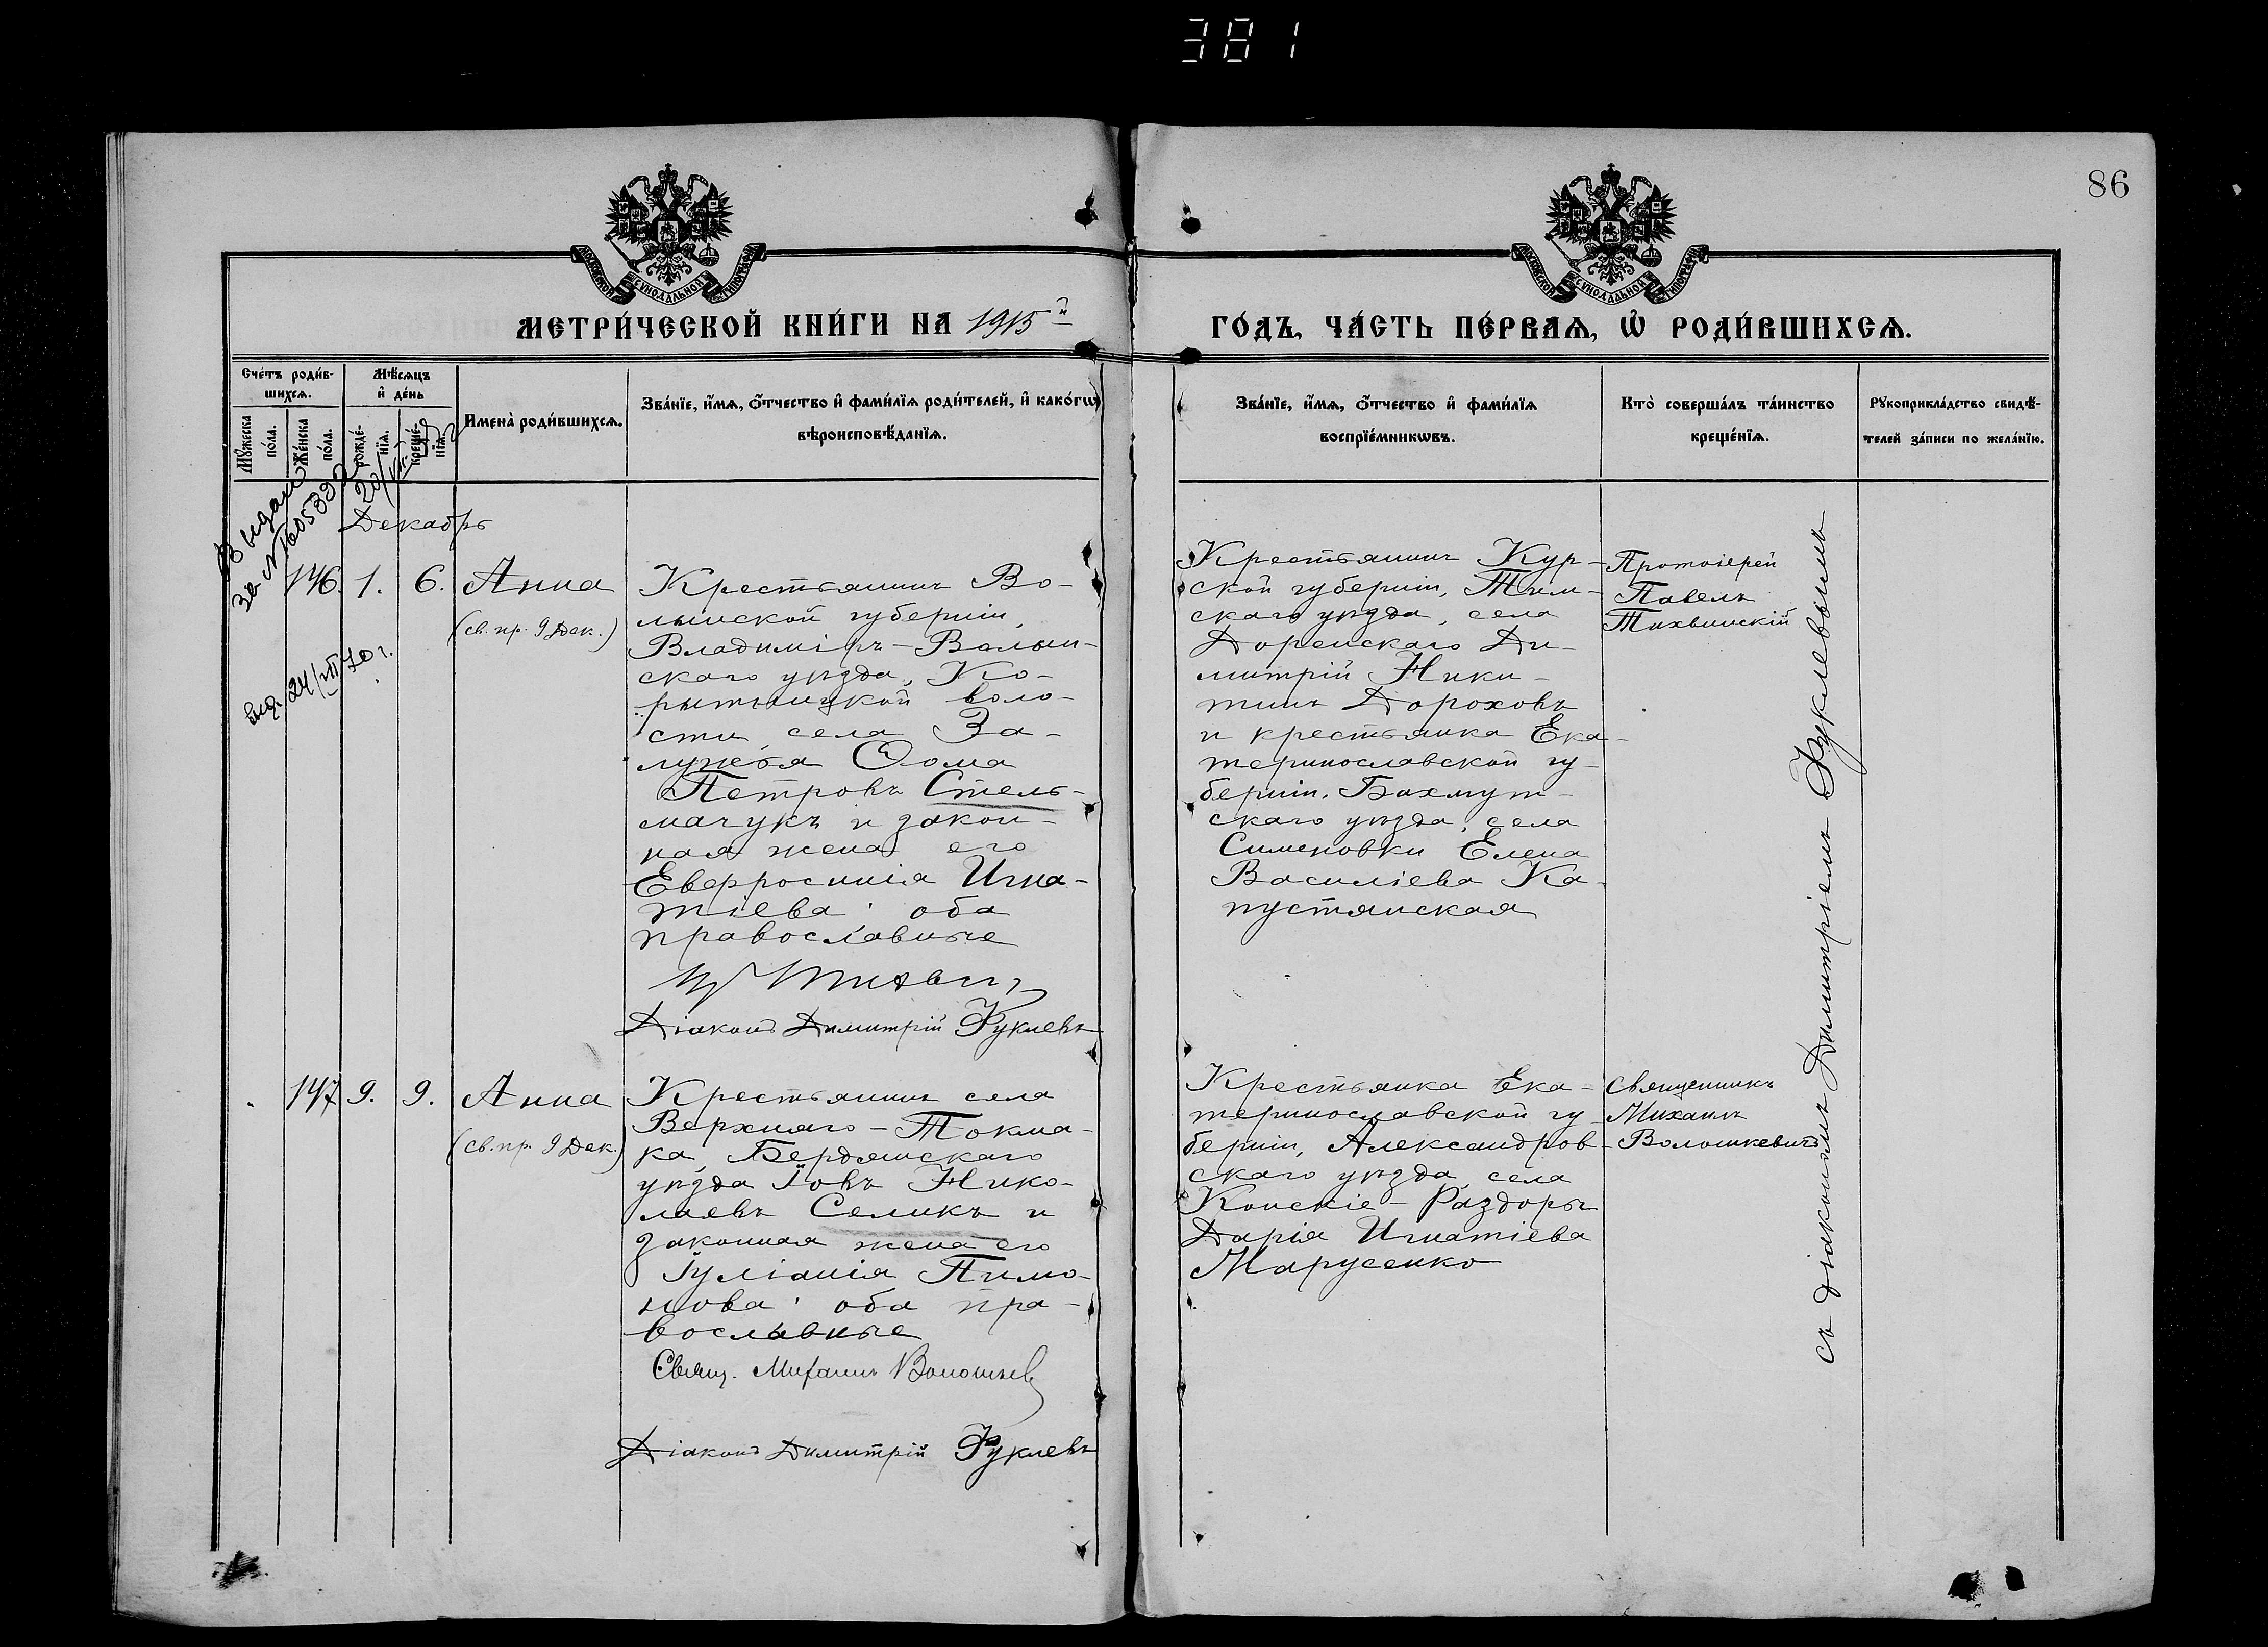 381
86
МОСКОВСКОЙ СѴНОДАЛЬНОЙ ТИПОГРАФІИ
МОСКОВСКОЙ СѴНОДАЛЬНОЙ ТИПОГРАФІИ
МЕТРИ́ЧЕСКОЙ КНИ́ГИ НА 1915й
ГО́ДЪ, ЧА́СТЬ ПЕ́РВАѦ, Ѡ҆ РОДИ́ВШИХСѦ.
Сче́тъ роди́в-
шихсѧ.
Мꙋ́жеска
по́ла.
Же́нска
по́ла.
Мѣ́сѧцъ
и҆ де́нь
рожде́-
нїѧ.
креще́-
нїѧ.
Имена̀ роди́вшихсѧ.
Зва́нїе, и҆́мѧ, ѻ҆́тчество и҆ фами́лїѧ роди́телей, и҆ како́гѡ
вѣроисповѣ́данїѧ.
Зва́нїе, и҆́мѧ, ѻ҆́тчество и҆ фами́лїѧ
воспрїе́мникѡвъ.
Кто̀ соверша́лъ та́инство
креще́нїѧ.
Рꙋкоприкла́дство свидѣ́-
телей за́писи по жела́нїю.
Декабрь
146. 1. 6. Анна
(св. пр. 9 Дек.)
Крестьянинъ Во-
лынской губерніи,
Владиміръ-Волын-
скаго уѣзда, Ко-
рытницкой воло-
сти, села За-
лужья Ѳома
Петровъ Стель-
мачукъ и закон-
ная жена его
Евфросинія Игна-
тіева; оба
православные
Діаконъ Димитрій Руклевъ
Крестьянинъ Кур-
ской губерніи, Тим-
скаго уѣзда, села
Доренскаго Ди-
митрій Ники-
тинъ Дороховъ
и крестьянка Ека-
теринославской гу-
берніи, Бахмут-
скаго уѣзда, села
Сименовки Елена
Василіева Ка-
пустянская
Протоіерей
Павелъ
Тихвинскій
съ діакономъ Димитріемъ Руклевымъ
выд. 24/VII 70 г.
147 9. 9. Анна
(св. пр. 9 Дек.)
Крестьянинъ села
Верхняго-Токма-
ка, Бердянскаго
уѣзда Іовъ Нико-
лаевъ Селикъ и
законная жена его
Іуліанія Пимо-
нова; оба пра-
вославные
Свящ. Михаилъ Волошкев
Діаконъ Димитрій Руклевъ
Крестьянка Ека-
теринославской гу-
берніи, Александров-
скаго уѣзда, села
Конскіе-Раздоры
Дарія Игнатіева
Марусенко
Священникъ
Михаилъ
Волошкевичъ